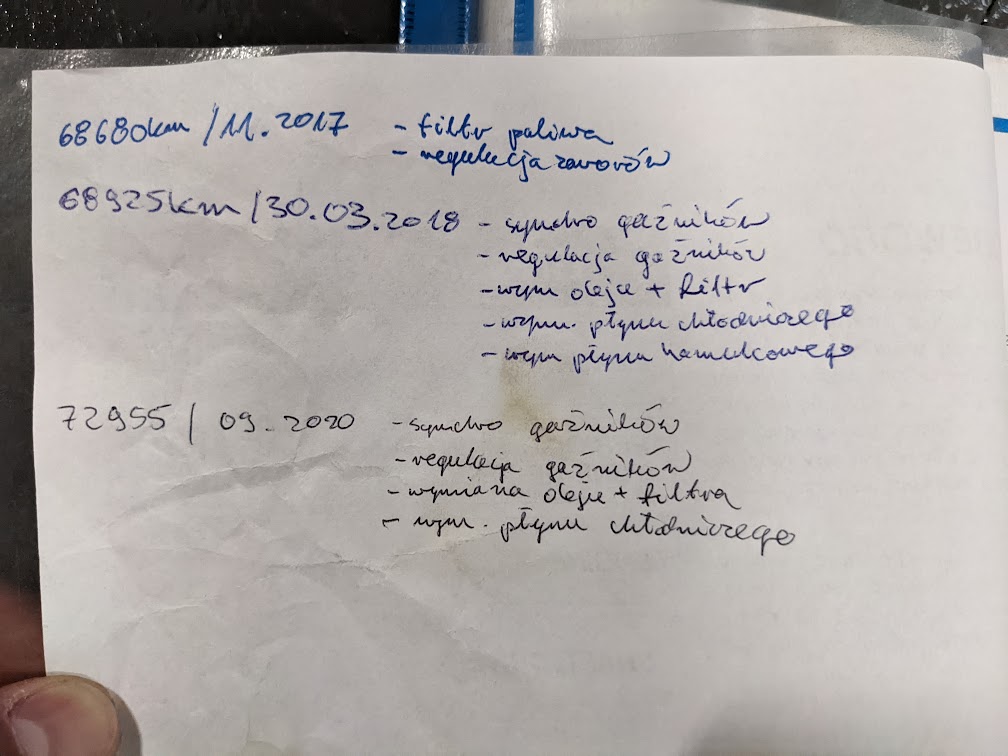 68680km / 11.2017 - filtr paliwa
- regulacja zaworów
68925km / 30.03.2018 - synchro gaźników
- regulacja gaźników
- wym oleju + filtr
- wym. płynu chłodniczego
- wym płynu hamulcowego
72955 / 09.2020 - synchro gaźników
- regulacja gaźników
- wymiana oleju + filtra
- wym. płynu chłodniczego